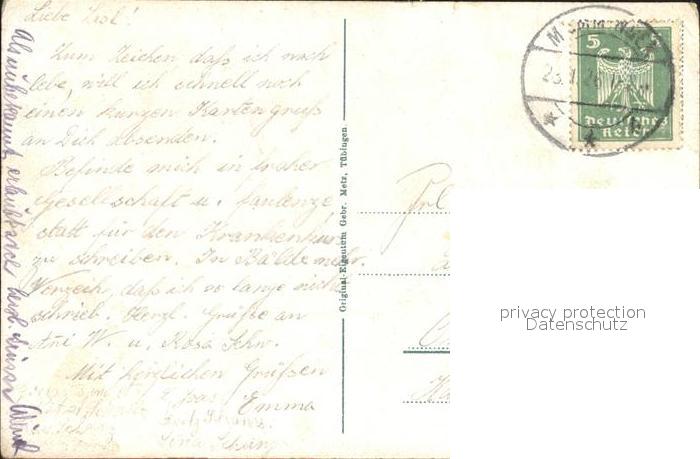 Liebe Lisl!
Zum Zeichen daß ich noch
lebe, will ich schnell noch
einen kurzen Kartengruß
an Dich absenden.
Befinde mich in froher
Gesellschaft u. faulenze
statt für den Krankenkurs
zu schreiben. In Bälde mehr.
Verzeih, daß ich so lange nicht
schrieb. Herzl. Grüße an
Ani W. u. Rosa Schn.
Mit herzlichen Grüßen
Emma
Als unbekannt erlaubt sich
Original-Eigentum Gebr. Metz, Tübingen.
5 5
Deutsches
Reich
Frl
privacy protection
Datenschutz